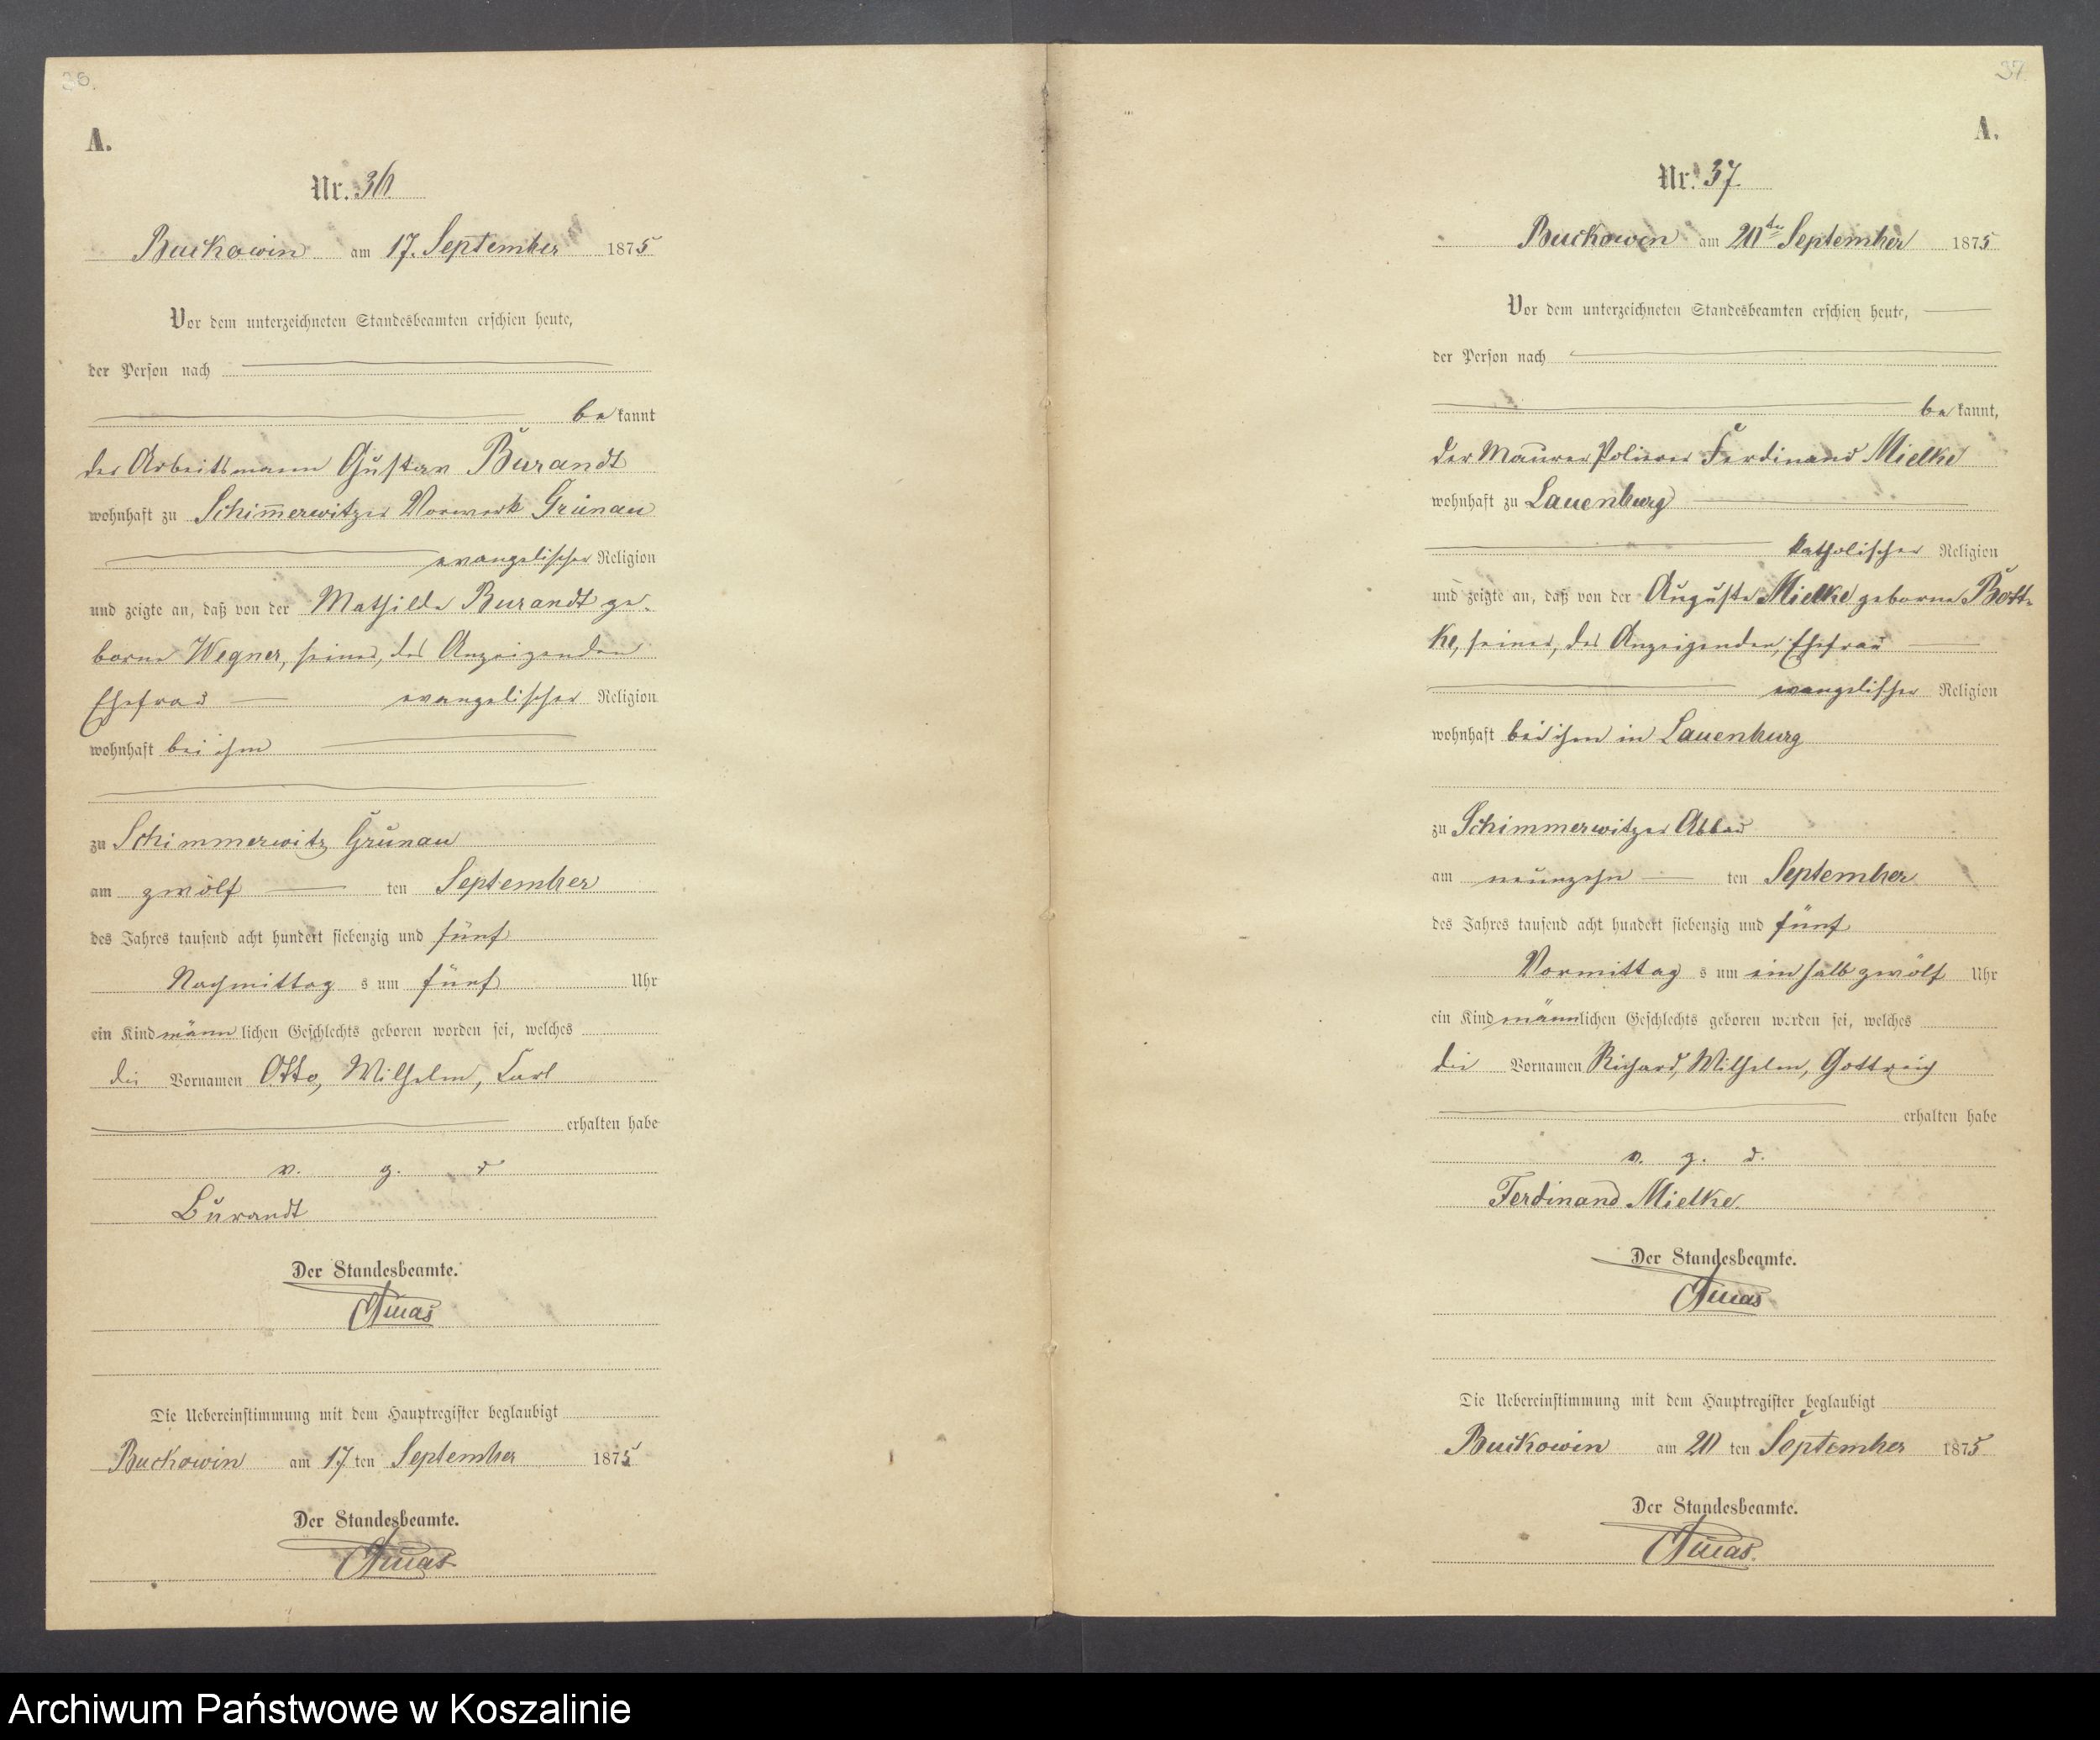 36.
A.
Nr. 36.
Buckowin am 17. September 1875
Vor dem unterzeichneten Standesbeamten erschien heute,
der Person nach
bekannt
der Arbeitsmann Gustav Burandt
wohnhaft zu Schim̅erwitzer Vorwerk Grünau
evangelischer Religion
und zeigte an, daß von der Mathilde Burandt ge-
borne Wegner, seiner, des Anzeigenden
Ehefrau evangelischer Religion
wohnhaft bei ihm
zu Schimmerwitz Grünau
am zwölf ten September
des Jahres tausend acht hundert siebenzig und fünf
Nachmittags um fünf Uhr
ein Kind männlichen Geschlechts geboren worden sei, welches
die Vornamen Otto, Wilhelm, Carl
erhalten habe
v. g. u
Burandt
Der Standesbeamte.
Die Uebereinstimmung mit dem Hauptregister beglaubigt
Buckowin am 17 ten September 1875
Der Standesbeamte.
37.
A.
Nr. 37.
Buckowin am 20ten September 1875
Vor dem unterzeichneten Standesbeamten erschien heute,
der Person nach
bekannt,
der Maurer Polierer Ferdinand Mielke
wohnhaft zu Lauenburg
katholischer Religion
und zeigte an, daß von der Auguste Mielke geborne Bott-
ke, seiner, des Anzeigenden, Ehefrau
evangelischer Religion
wohnhaft bei ihm in Lauenburg
zu Schimmerwitzer Abbau
am neunzehn ten September
des Jahres tausend acht hundert siebenzig und fünf
Vormittags um ein halb zwölf Uhr
ein Kind männlichen Geschlechts geboren worden sei, welches
die Vornamen Richard, Wilhelm, Gottreich
erhalten habe
v. g. u.
Ferdinand Mielke.
Der Standesbeamte.
Die Uebereinstimmung mit dem Hauptregister beglaubigt
Buckowin am 20 ten September 1875
Der Standesbeamte.
Archiwum Państwowe w Koszalinie